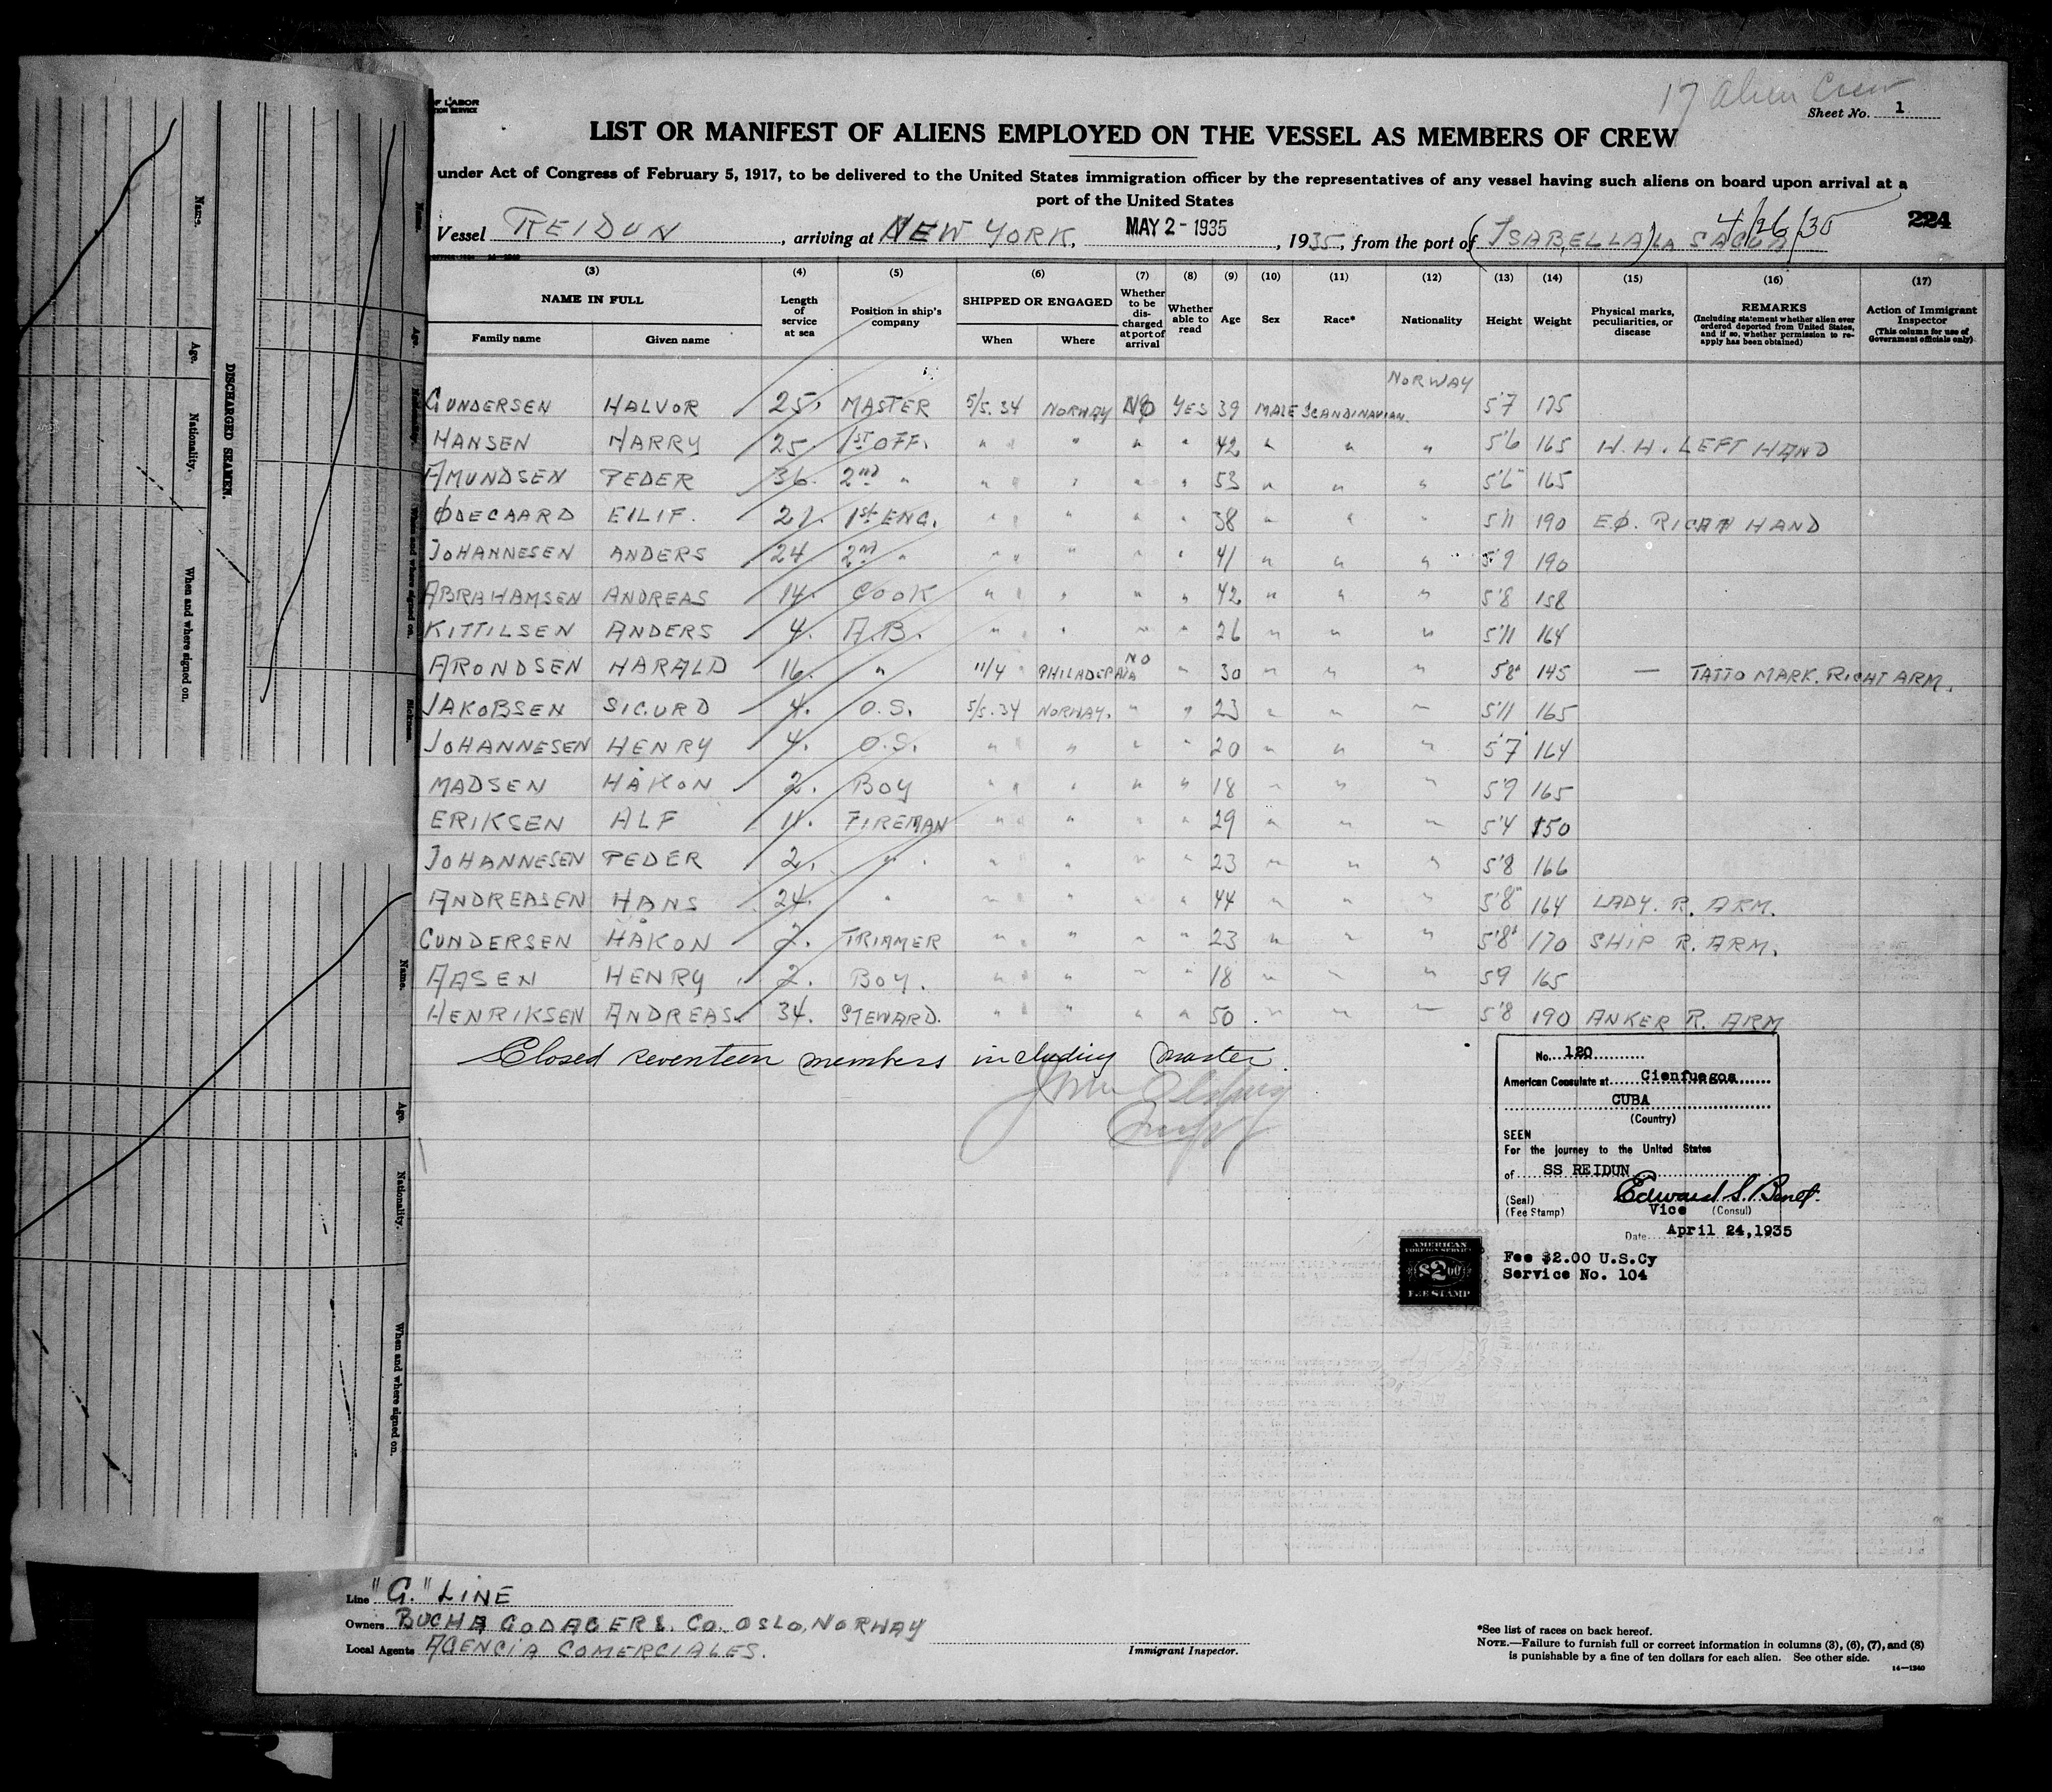 17 Alien Crew
OF LABOR
Sheet No. 1
LIST OR MANIFEST OF ALIENS EMPLOYED ON THE VESSEL AS MEMBERS OF CREW
under Act of Congress of February 5, 1917, to be delivered to the United States immigration officer by the representatives of any vessel having such aliens on board upon arrival at a
port of the United States
4/26/35 224
Vessel REIDUN, arriving at NEW YORK, MAY 2 - 1935, 1935, from the port of (ISABELLA) LA SAGUA
(3) (4) (5) (6) (7) (8) (9) (10) (11) (12) (13) (14) (15) (16) (17)
NAME IN FULL Length of service at sea Position in ship's company SHIPPED OR ENGAGED Whether to be discharged at port of arrival Whether able to read Age Sex Race* Nationality Height Weight Physical marks, peculiarities, or disease REMARKS (Including statement whether alien ever ordered deported from United States, and if so, whether permission to reapply has been obtained) Action of Immigrant Inspector (This column for use of Government officials only)
Family name Given name When Where
NORWAY
GUNDERSEN HALVOR 25. MASTER 5/5.34 NORWAY NO YES 39 MALE SCANDINAVIAN. 5'7 175
HANSEN HARRY 25 1ST OFF. " " " " 42 " " " 5'6 165 H.H. LEFT HAND
AMUNDSEN PEDER 36. 2nd " " " " " 53 " " " 5'6" 165
ØDEGAARD EILIF. 21. 1st ENG. " " " " 38 " " " 5'11 190 EØ. RIGHT HAND
JOHANNESEN ANDERS 24 2nd " " " " " 41 " " " 5'9 190
ABRAHAMSEN ANDREAS 14. COOK " " " " 42 " " " 5'8 158
KITTILSEN ANDERS 4. A.B. " " " " 26 " " " 5'11 164
ARONDSEN HARALD 16. " 11/4 " PHILADEPHIA NO " 30 " " " 5'8" 145 — TATTO MARK. RIGHT ARM.
JAKOBSEN SIGURD 4. O.S. 5/5.34 NORWAY. " " 23 " " " 5'11 165
JOHANNESEN HENRY 4. O.S. " " " " 20 " " " 5'7 164
MADSEN HÅKON 2. BOY " " " " 18 " " " 5'9 165
ERIKSEN ALF 11. FIREMAN " " " " 29 " " " 5'4 150
JOHANNESEN PEDER 2. " " " " " 23 " " " 5'8 166
ANDREASEN HANS 24. " " " " " 44 " " " 5'8" 164 LADY. R. ARM.
GUNDERSEN HÅKON 2. TRIMMER " " " " 23 " " " 5'8" 170 SHIP R. ARM.
AASEN HENRY 2. BOY. " " " " 18 " " 5'9 165
HENRIKSEN ANDREAS 34. STEWARD. " " " " 50 " " " 5'8 190 ANKER R. ARM
Closed seventeen members including master.
No. 120
American Consulate at Cienfuegos
CUBA
(Country)
SEEN
For the journey to the United States
of SS REIDUN
(Seal) Edward S. Benet
(Fee Stamp) Vice (Consul)
Date April 24, 1935
Fee $2.00 U.S.Cy
Service No. 104
AMERICAN
FOREIGN SERVICE
$2.00
FEE STAMP
Line "G." LINE
Owners BUCHA GODAGER & CO. OSLO, NORWAY
Local Agents AGENCIA COMERCIALES.
Immigrant Inspector.
*See list of races on back hereof.
NOTE.—Failure to furnish full or correct information in columns (3), (6), (7), and (8)
is punishable by a fine of ten dollars for each alien. See other side.
14—1240
DISCHARGED SEAMEN.
Name. Age. Nationality. When and where signed on.
Name. Age. Nationality. When and where signed on.